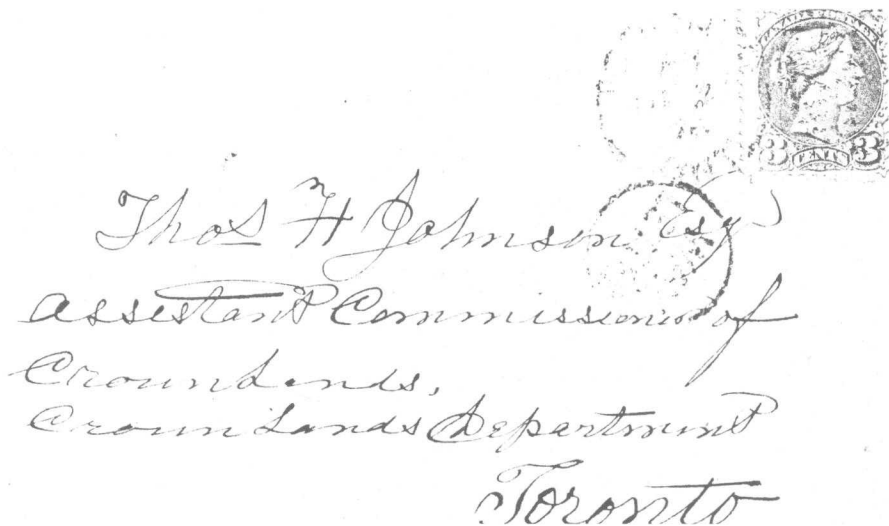 3 CENTS 3
Thos H Johnson Esqr
Assistant Commissioner of
Crown Lands,
Crown Lands Department
Toronto